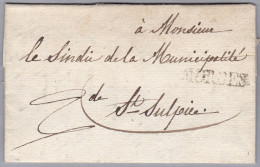 à Monsieur
le Sindic de la Municipalité
MORGES
de
St. Sulpice.